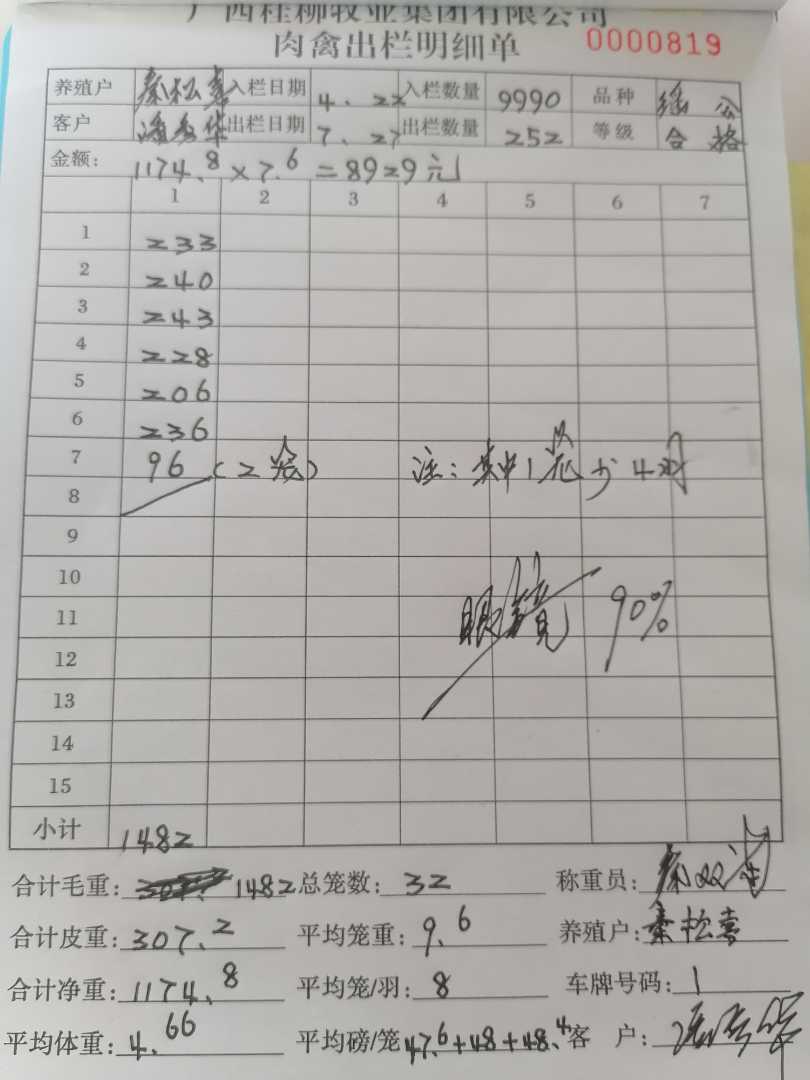 广西桂柳牧业集团有限公司
肉禽出栏明细单 0000819
养殖户 秦松喜 入栏日期 4.22 入栏数量 9990 品种 瑶公
客户 出栏日期 7.27 出栏数量 252 等级 合格
金额: 1174.8×7.6=8929元
1 2 3 4 5 6 7
1 233
2 240
3 243
4 228
5 206
6 236
7 96(2笼) 注:其中1笼少4羽
8
9
10
11 眼镜 90%
12
13
14
15
小计 1482
合计毛重: 1482 总笼数: 32 称重员:
合计皮重: 307.2 平均笼重: 9.6 养殖户: 秦松喜
合计净重: 1174.8 平均笼/羽: 8 车牌号码: 1
平均体重: 4.66 平均磅/笼 47.6+48+48.4 客户: